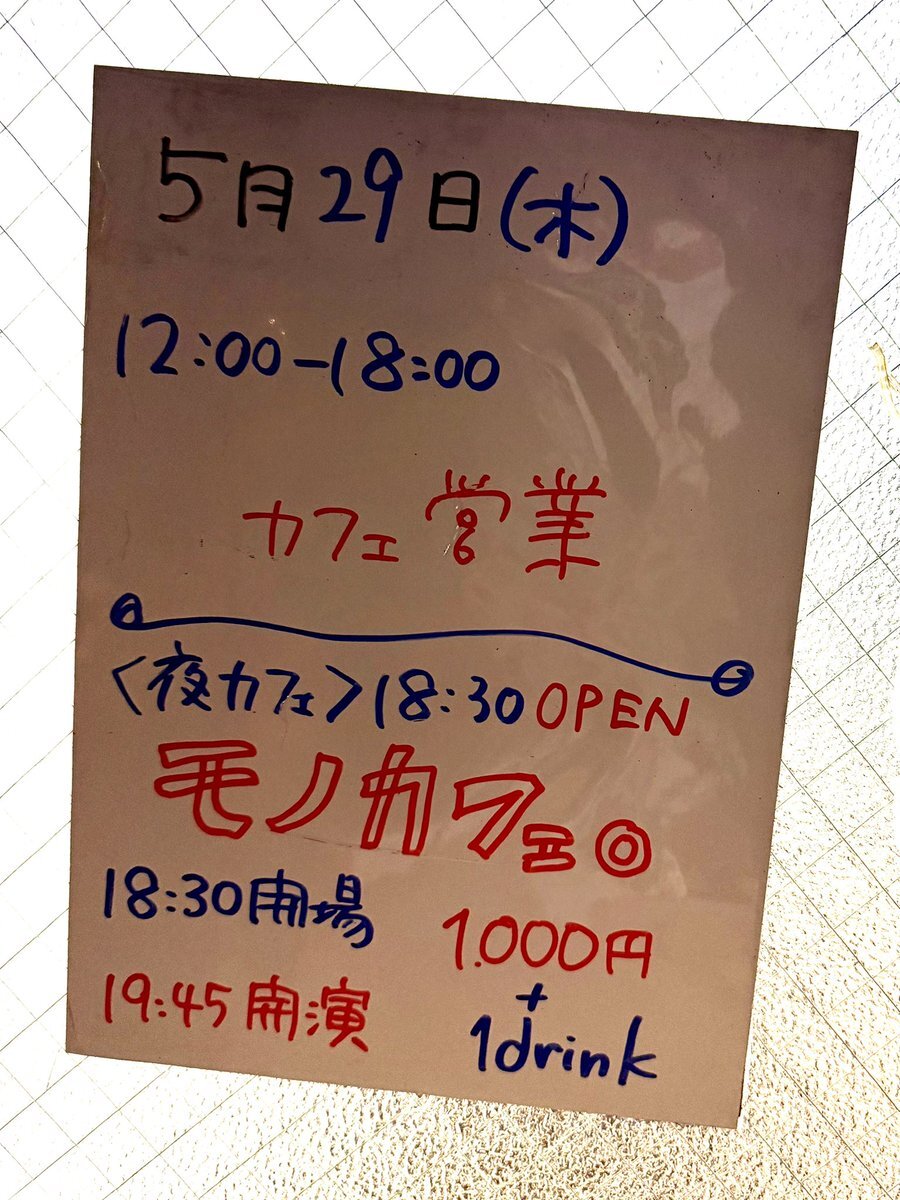 5月29日(木)
12:00-18:00
カフェ営業
〈夜カフェ〉18:30 OPEN
モノカフェ◎
18:30開場
1.000円
19:45開演
+
1drink